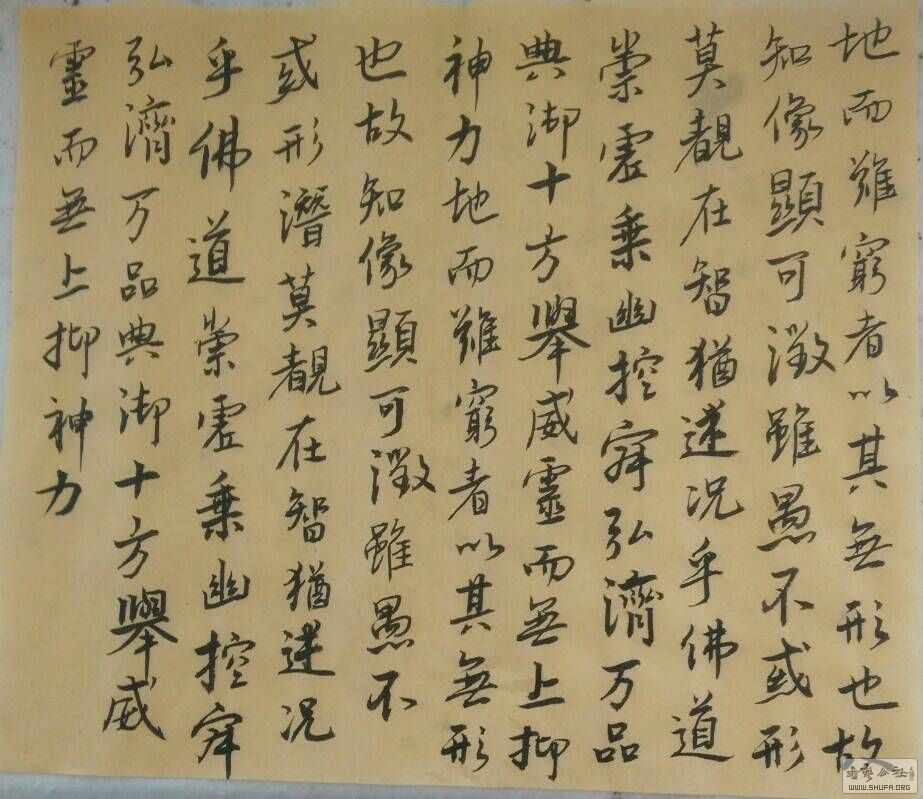 地而難窮者以其無形也故
知像顯可徵雖愚不惑形
莫覩在智猶迷况乎佛道
崇虛乘幽控寂弘濟万品
典御十方舉威靈而無上抑
神力地而難窮者以其無形
也故知像顯可徵雖愚不
惑形潛莫覩在智猶迷况
乎佛道崇虛乘幽控寂
弘濟万品典御十方舉威
靈而無上抑神力
WWW.SHUFA.ORG